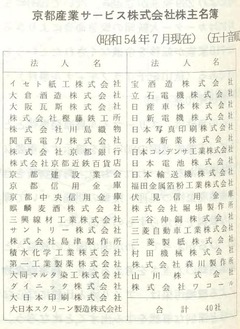 京都産業サービス株式会社株主名簿
(昭和54年7月現在) (五十音順
法人名 法人名
イセト紙工株式会社 宝酒造株式会社
大倉酒造株式会社 立石電機株式会社
大阪瓦斯株式会社 日産車体株式会社
株式会社樫藤鉄工所 日新電機株式会社
株式会社川島織物 日本写真印刷株式会社
関西電力株式会社 日本新薬株式会社
株式会社京都銀行 日本コンデンサ工業株式会社
株式会社京都近鉄百貨店 日本電池株式会社
京都建設業会 日本輸送機株式会社
京都信用金庫 福田金属箔粉工業株式会社
京都中央信用金庫 伏見信用金庫
麒麟麦酒株式会社 株式会社堀場製作所
三興線材工業株式会社 三谷伸銅株式会社
サントリー株式会社 三菱自動車工業株式会社
株式会社島津製作所 三菱製紙株式会社
積水化学工業株式会社 村田機械株式会社
第一工業製薬株式会社 株式会社森川製作所
大同マルタ染工株式会社 山川株式会社
ダイニック株式会社 株式会社ワコール
大日本印刷株式会社
大日本スクリーン製造株式会社 合計 40社